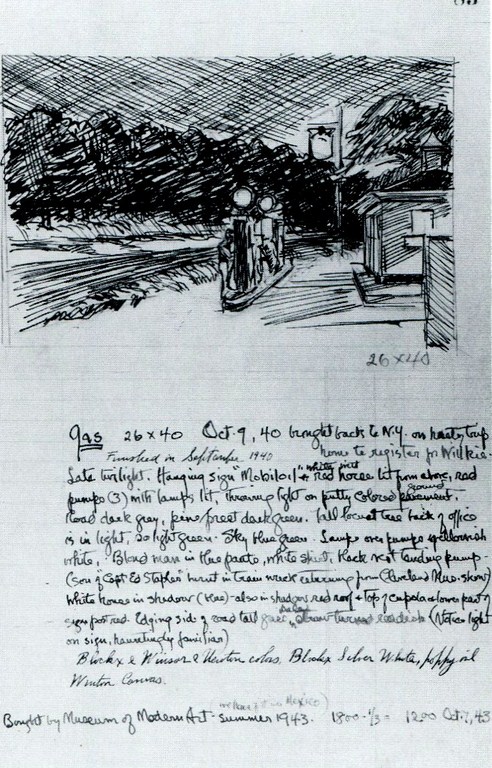 26 x 40
Gas 26 x 40 Oct. 9, 40 brought back to N.Y. on hasty trip
Finished in September 1940 home to register for Willkie.
Late twilight. Hanging sign "Mobiloil" white with red horse lit from above, red
pumps (3) with lamps lit, throwing light on putty colored ground.
Road dark gray, pine forest dark green. Tall locust tree back of office
is in light, so light green. Sky blue green. Lamps over pumps yellowish
white. Blond man in blue pants, white shirt, black vest tending pump.
(son of Capt Ed Staples burnt in train wreck returning from Cleveland Mus. show)
White house in shadow (blue) - also in shadow red roof & top of cupola & lower part of
sign post red. Edging side of road tall straw turned reddish (Notice light
on sign, hauntingly familiar)
Blockx & Winsor & Newton colors, Blockx Silver White, poppy oil
Winton Canvas.
in Mexico)
Bought by Museum of Modern Art - summer 1943. 1800 - 1/3 = 1200 Oct. 7, 43